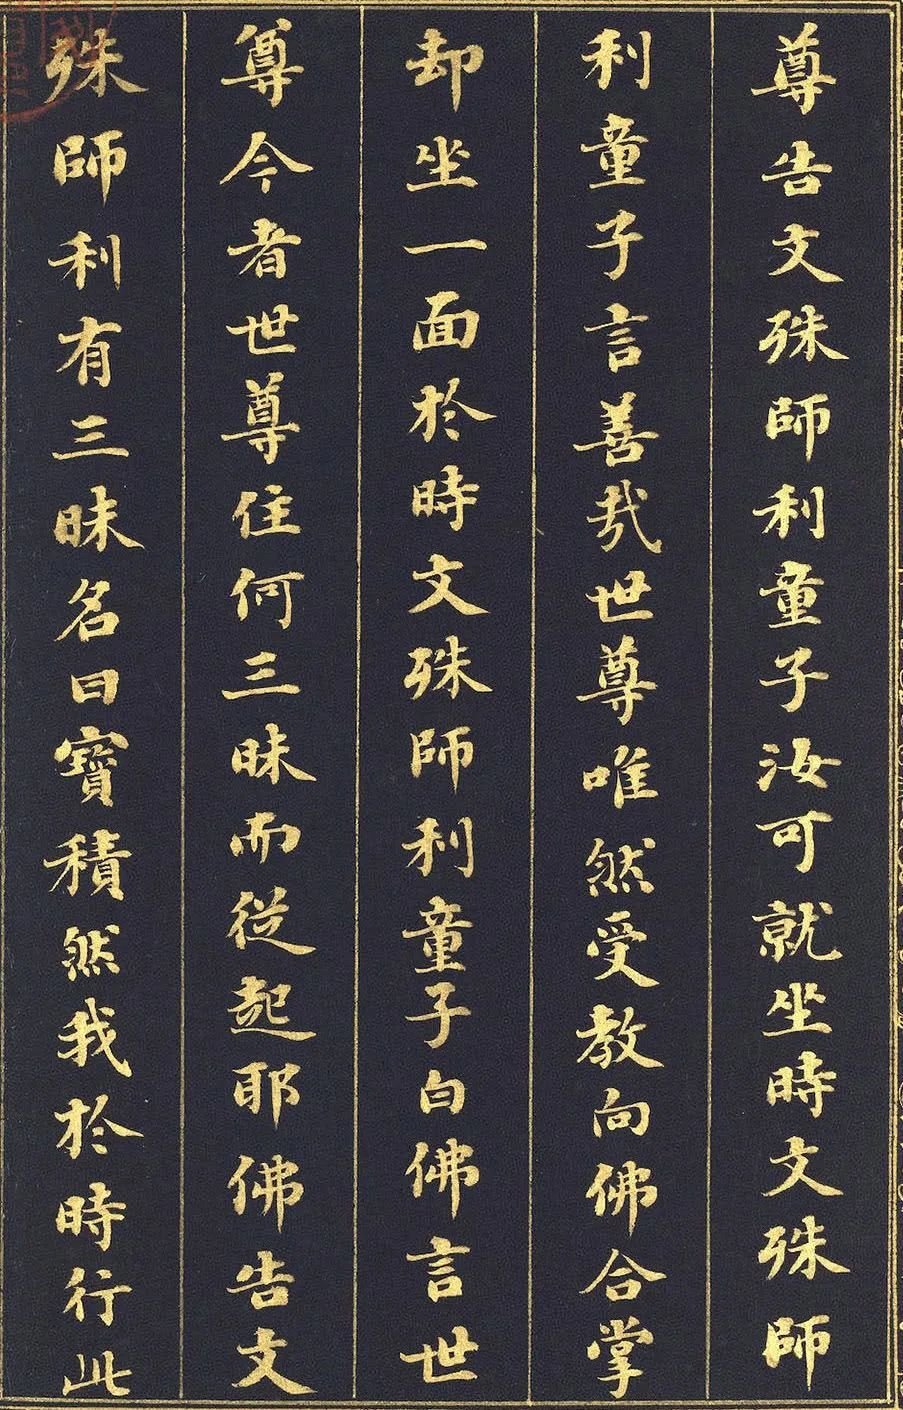 尊告文殊師利童子汝可就坐時文殊師
利童子言善哉世尊唯然受教向佛合掌
却坐一面於時文殊師利童子白佛言世
尊今者世尊住何三昧而從起耶佛告文
殊師利有三昧名曰寶積然我於時行此